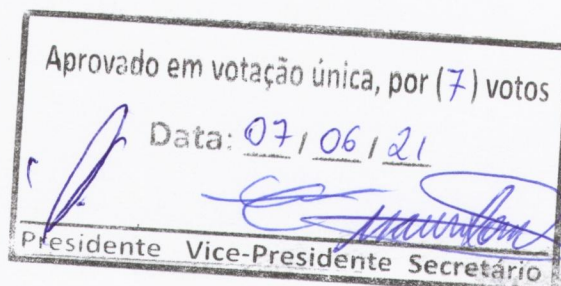 Aprovado em votação única, por (7) votos
Data: 07/06/21
Presidente Vice-Presidente Secretário